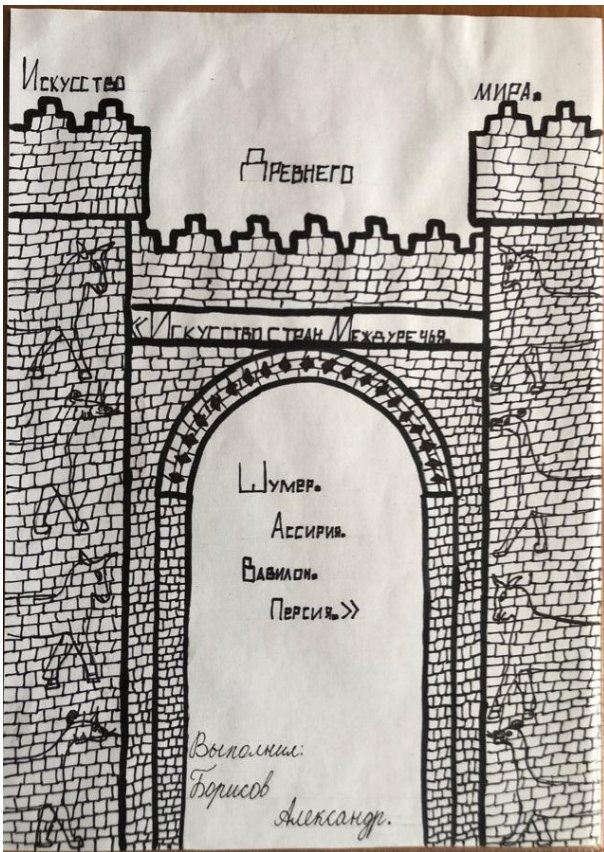 Искусство
Древнего
мира.
«Искусство стран Междуречья.
Шумер.
Ассирия.
Вавилон.
Персия.»
Выполнил:
Борисов
Александр.